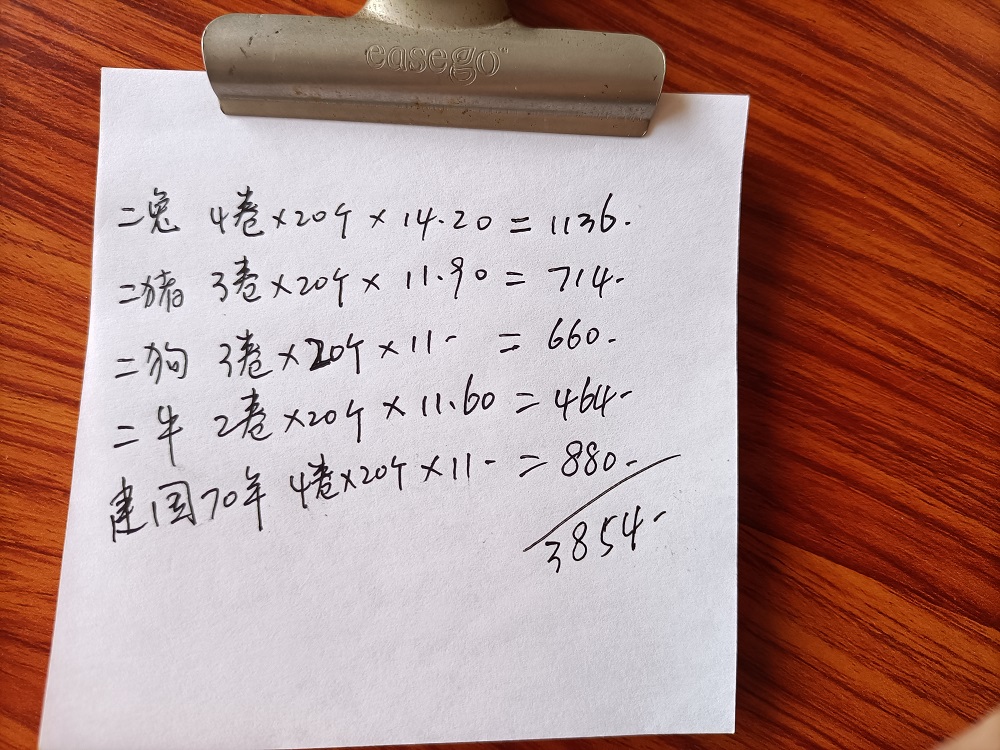 easego
二兔 4卷×20个×14.20=1136.
二猪 3卷×20个×11.90=714-
二狗 3卷×20个×11- =660.
二牛 2卷×20个×11.60=464-
建国70年 4卷×20个×11-=880-
3854-